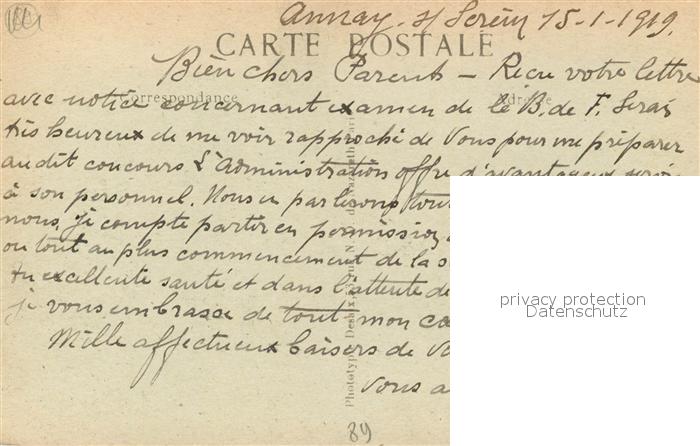 Annay s/ Serein 15-1-1919.
CARTE POSTALE
Bien chers Parents - Recu votre lettre
Correspondance
Adresse
avec notice concernant examen de le B. de F. Serais
très heureux de me voir rapproché de Vous pour me préparer
au dit concours L'administration offre d'avantageux
à son personnel. Nous en parlerons
nous, je compte partir en permission
ou tout au plus commencement de la s
En excellente santé et dans l'attente de
je vous embrasse de tout mon
Mille affectueux baisers de
vous a
Phototypie Desaix,
89
privacy protection
Datenschutz